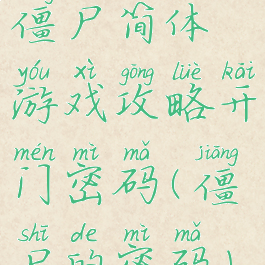 僵尸简体
yóu xì gōng lüè kāi
游戏攻略开
mén mì mǎ jiāng
门密码(僵
shī de mì mǎ
尸的密码)